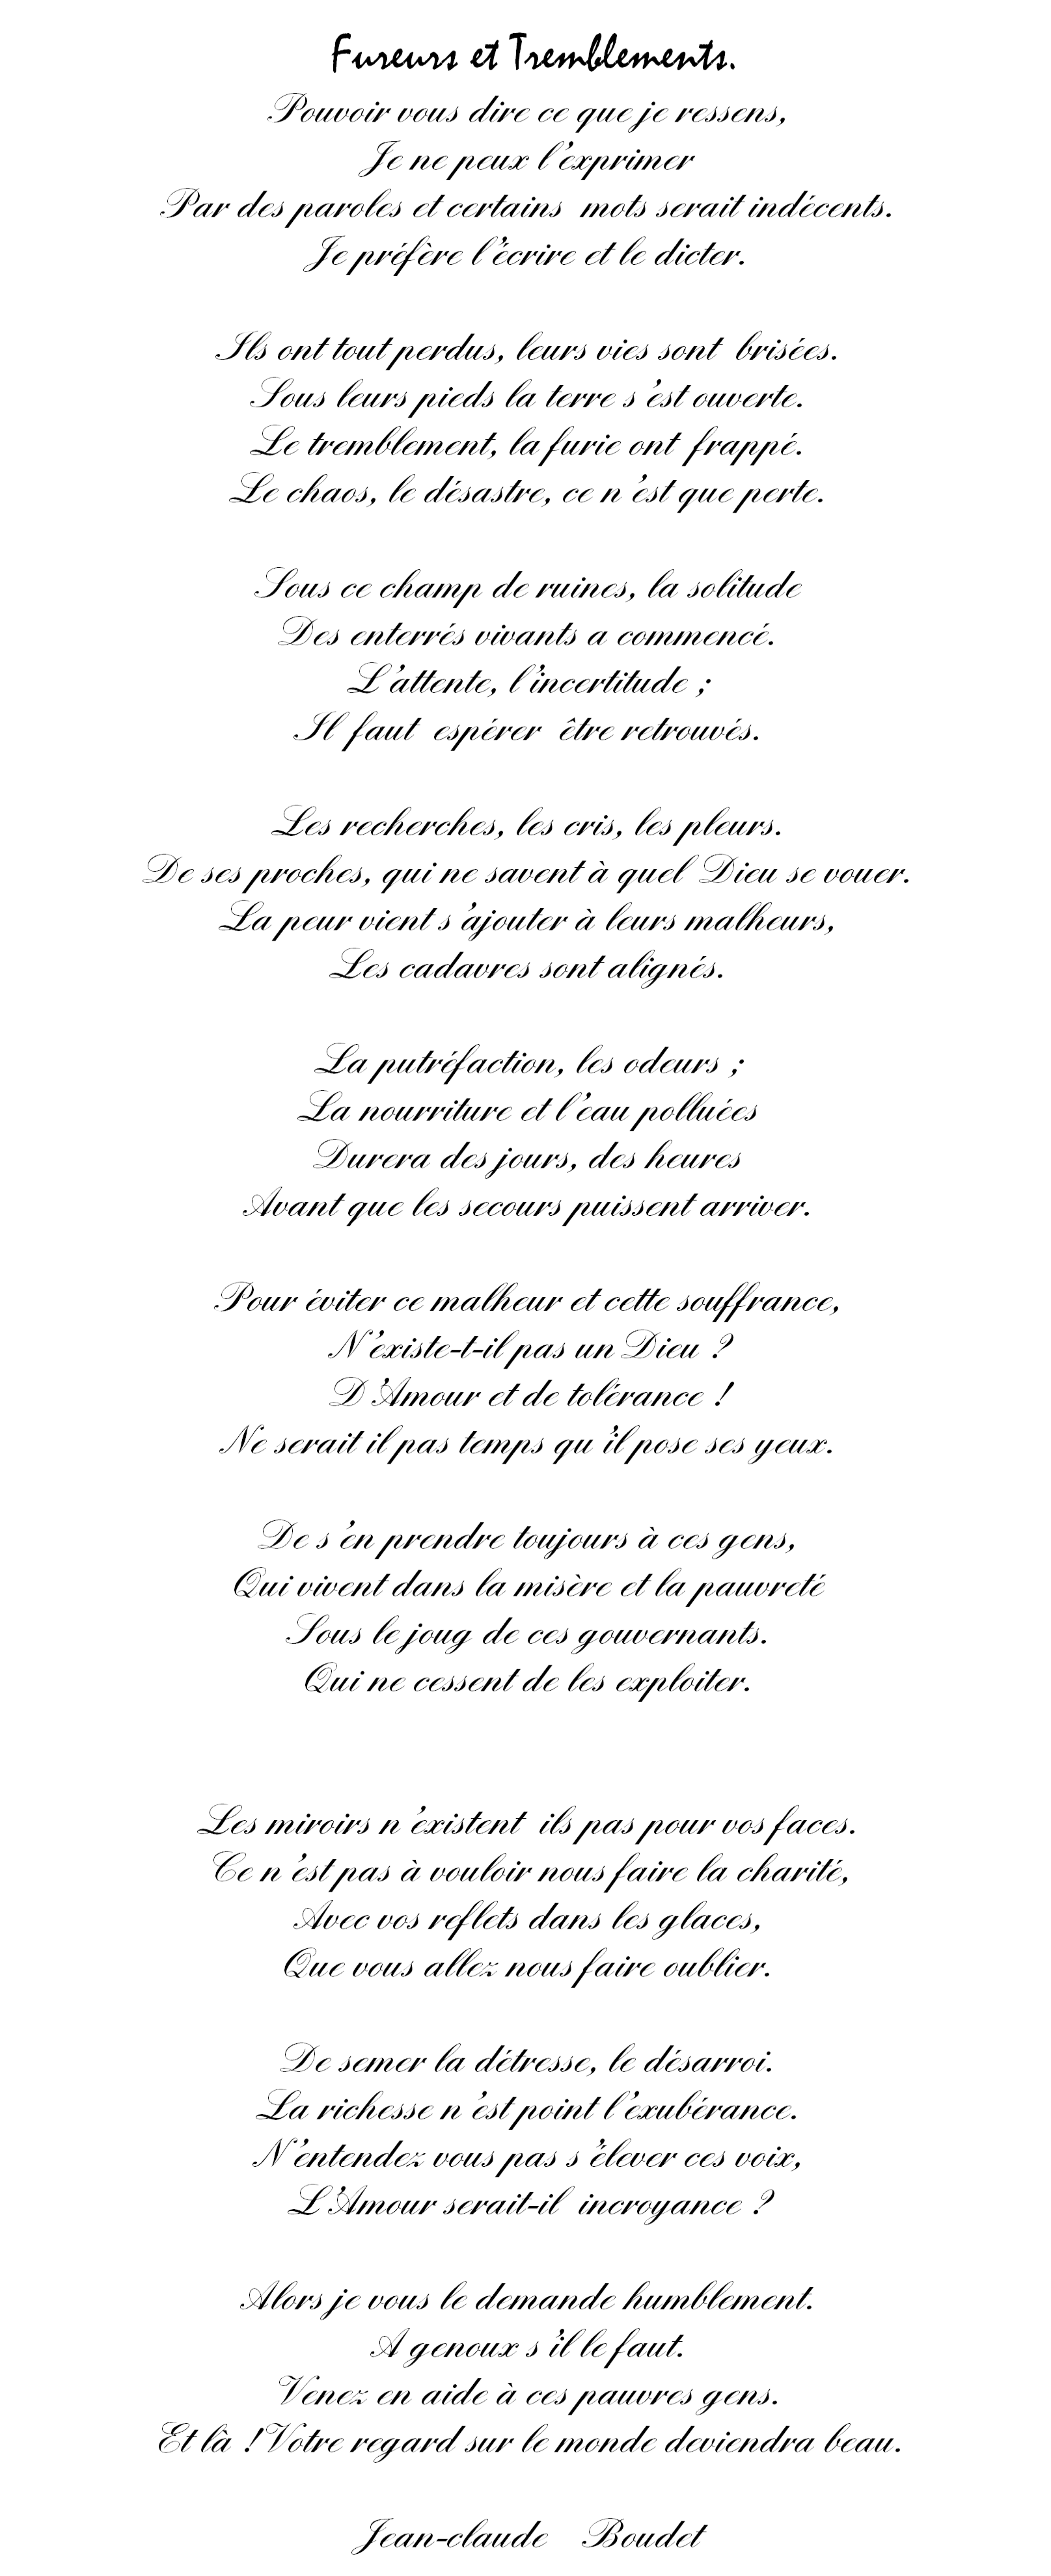 Fureurs et Tremblements.
Pouvoir vous dire ce que je ressens,
Je ne peux l'exprimer
Par des paroles et certains mots serait indécents.
Je préfère l'écrire et le dicter.
Ils ont tout perdus, leurs vies sont brisées.
Sous leurs pieds la terre s'est ouverte.
Le tremblement, la furie ont frappé.
Le chaos, le désastre, ce n'est que perte.
Sous ce champ de ruines, la solitude
Des enterrés vivants a commencé.
L'attente, l'incertitude ;
Il faut espérer être retrouvés.
Les recherches, les cris, les pleurs.
De ses proches, qui ne savent à quel Dieu se vouer.
La peur vient s'ajouter à leurs malheurs,
Les cadavres sont alignés.
La putréfaction, les odeurs ;
La nourriture et l'eau polluées
Durera des jours, des heures
Avant que les secours puissent arriver.
Pour éviter ce malheur et cette souffrance,
N'existe-t-il pas un Dieu ?
D'Amour et de tolérance !
Ne serait il pas temps qu'il pose ses yeux.
De s'en prendre toujours à ces gens,
Qui vivent dans la misère et la pauvreté
Sous le joug de ces gouvernants.
Qui ne cessent de les exploiter.
Les miroirs n'existent ils pas pour vos faces.
Ce n'est pas à vouloir nous faire la charité,
Avec vos reflets dans les glaces,
Que vous allez nous faire oublier.
De semer la détresse, le désarroi.
La richesse n'est point l'exubérance.
N'entendez vous pas s'élever ces voix,
L'Amour serait-il incroyance ?
Alors je vous le demande humblement.
A genoux s'il le faut.
Venez en aide à ces pauvres gens.
Et là ! Votre regard sur le monde deviendra beau.
Jean-claude Boudet